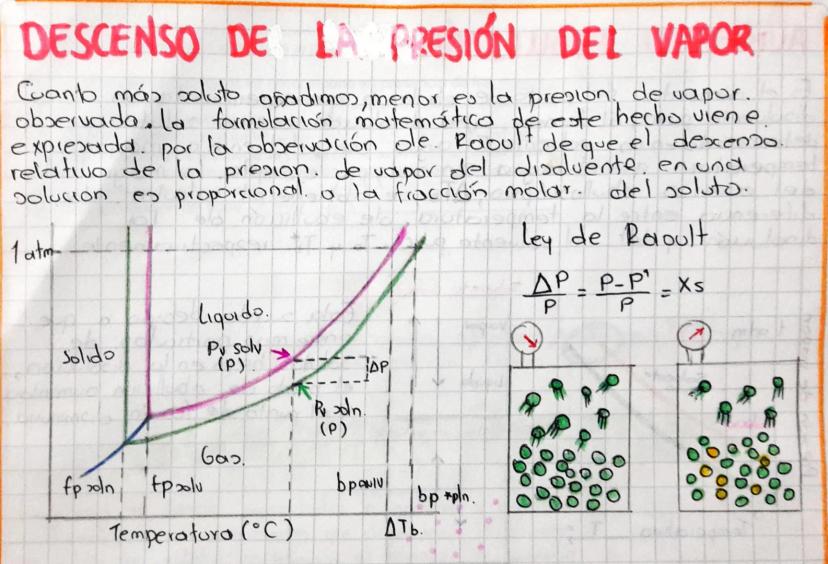 DESCENSO DE LA PRESIÓN DEL VAPOR
Cuanto más soluto añadimos, menor es la presion. de vapor.
observada. la formulación matemática de este hecho viene
expresada. por la observación de. Raoult de que el descenso.
relativo de la presion. de vapor del disolvente. en una
solucion es proporcional. a la fracción molar. del soluto.
1 atm
ley de Raoult
ΔP/P = P-P'/P = Xs
Liquido.
Solido
Pv solv
(P)
ΔP
Pv soln.
(P)
Gas.
fp soln
fp solv
bp solv
bp soln.
Temperatura (°C)
ΔTb.